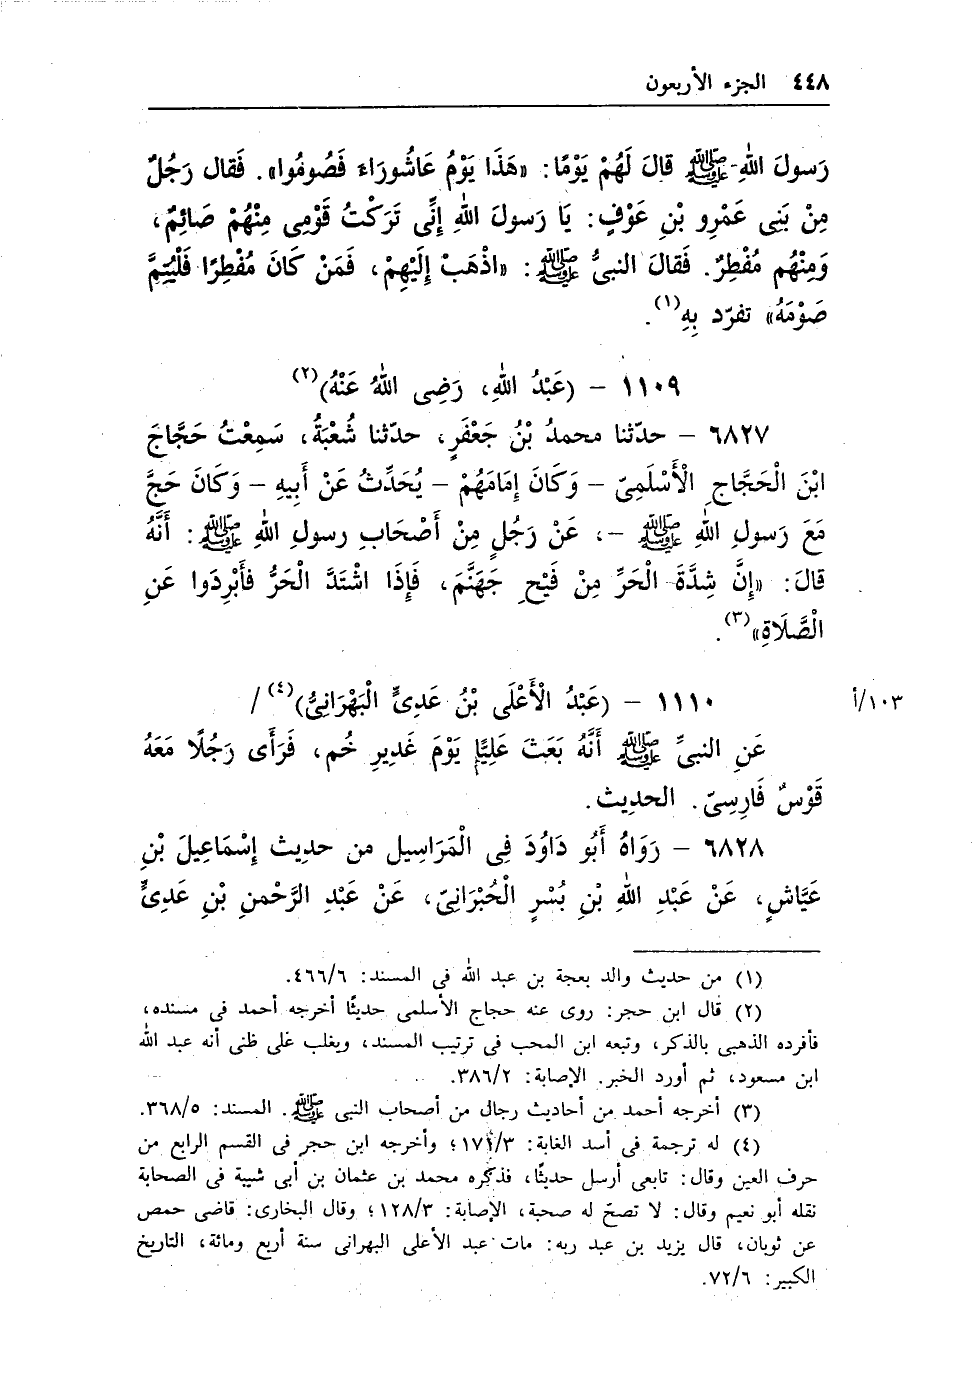 ٤٤٨ الجزء الأربعون
رَسولَ اللهِ ﷺ قالَ لَهُمْ يَوْمًا: «هَذَا يَوْمُ عَاشُورَاءَ فَصُومُوا». فَقال رَجُلٌ
مِنْ بَنِى عَمْرِو بْنِ عَوْفٍ: يَا رَسولَ اللهِ إِنِّى تَرَكْتُ قَوْمِى مِنْهُمْ صَائِمٌ،
وَمِنْهُم مُفْطِرٌ. فَقالَ النبىُّ ﷺ: «اذْهَبْ إِلَيْهِمْ، فَمَنْ كَانَ مُفْطِرًا فَلْيُتِمَّ
صَوْمَهُ» تفرّد بِهِ(١).
١١٠٩ – (عَبْدُ اللهِ، رَضِى اللهُ عَنْهُ)(٢)
٦٨٢٧ – حدّثنا محمدُ بْنُ جَعْفَرٍ، حدّثنا شُعْبَةُ، سَمِعْتُ حَجَّاجَ
ابْنَ الْحَجَّاجِ الْأَسْلَمِىّ – وَكَانَ إِمَامَهُمْ – يُحَدِّثُ عَنْ أَبِيهِ – وَكَانَ حَجَّ
مَعَ رَسولِ اللهِ ﷺ –، عَنْ رَجُلٍ مِنْ أَصْحَابِ رسولِ اللهِ ﷺ: أَنَّهُ
قالَ: «إِنَّ شِدَّةَ الْحَرِّ مِنْ فَيْحِ جَهَنَّمَ، فَإِذَا اشْتَدَّ الْحَرُّ فأَبْرِدَوا عَنِ
الْصَّلَاةِ»(٣).
١١١٠ – (عَبْدُ الْأَعْلَى بْنُ عَدِىٍّ الْبَهْرَانِىُّ)(٤) / ١٠٣/أ
عَنِ النبىِّ ﷺ أَنَّهُ بَعَثَ عَلِيًّا يَوْمَ غَدِيرِ خُم، فَرَأَى رَجُلًا مَعَهُ
قَوْسٌ فَارِسِىّ. الحدِيث.
٦٨٢٨ – رَوَاهُ أَبُو دَاوُدَ فِى الْمَرَاسِيل من حدِيث إِسْمَاعِيلَ بْنِ
عَيَّاشٍ، عَنْ عَبْدِ اللهِ بْنِ بُسْرٍ الْحُبْرَانِىّ، عَنْ عَبْدِ الرَّحْمنِ بْنِ عَدِىٍّ
(١) من حديث والد بعجة بن عبد الله فى المسند: ٤٦٦/٦.
(٢) قال ابن حجر: روى عنه حجاج الأسلمى حديثًا أخرجه أحمد فى مسنده،
فأفرده الذهبى بالذكر، وتبعه ابن المحب فى ترتيب المسند، ويغلب على ظنى أنه عبد الله
ابن مسعود، ثم أورد الخبر. الإصابة: ٣٨٦/٢.
(٣) أخرجه أحمد من أحاديث رجال من أصحاب النبى ﷺ. المسند: ٣٦٨/٥.
(٤) له ترجمة فى أسد الغابة: ١٧١/٣؛ وأخرجه ابن حجر فى القسم الرابع من
حرف العين وقال: تابعى أرسل حديثًا، فذكره محمد بن عثمان بن أبى شيبة فى الصحابة
نقله أبو نعيم وقال: لا تصحّ له صحبة، الإصابة: ١٢٨/٣؛ وقال البخارى: قاضى حمص
عن ثوبان، قال يزيد بن عبد ربه: مات عبد الأعلى البهرانى سنة أربع ومائة، التاريخ
الكبير: ٧٢/٦.